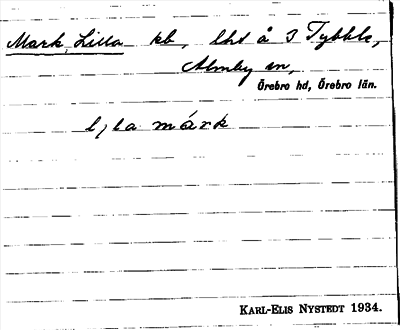 Mark, Lilla kb, lht å 3 Tybble,
Almby sn,
Örebro hd, Örebro län.
l/la márk
KARL-ELIS NYSTEDT 1934.